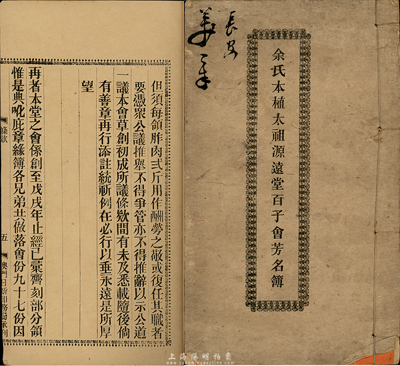 余氏本植太祖源遠堂百子會芳名簿
長男
但須每領胙肉弍斤用作酬勞之敬或復任其職者
要憑眾公議推舉不得爭管亦不得推辭以示公道
一議本會草創初成所議條欵間有未及悉載隨後倘
有善章再行添註統祈例在必行以垂永遠是所厚
望
再者本堂之會係創至戊戌年止經已彙齊刻部分領
惟是典吪庇章緣簿各兄弟共做落會份九十七份因
條欵
五
上海陽明拍賣